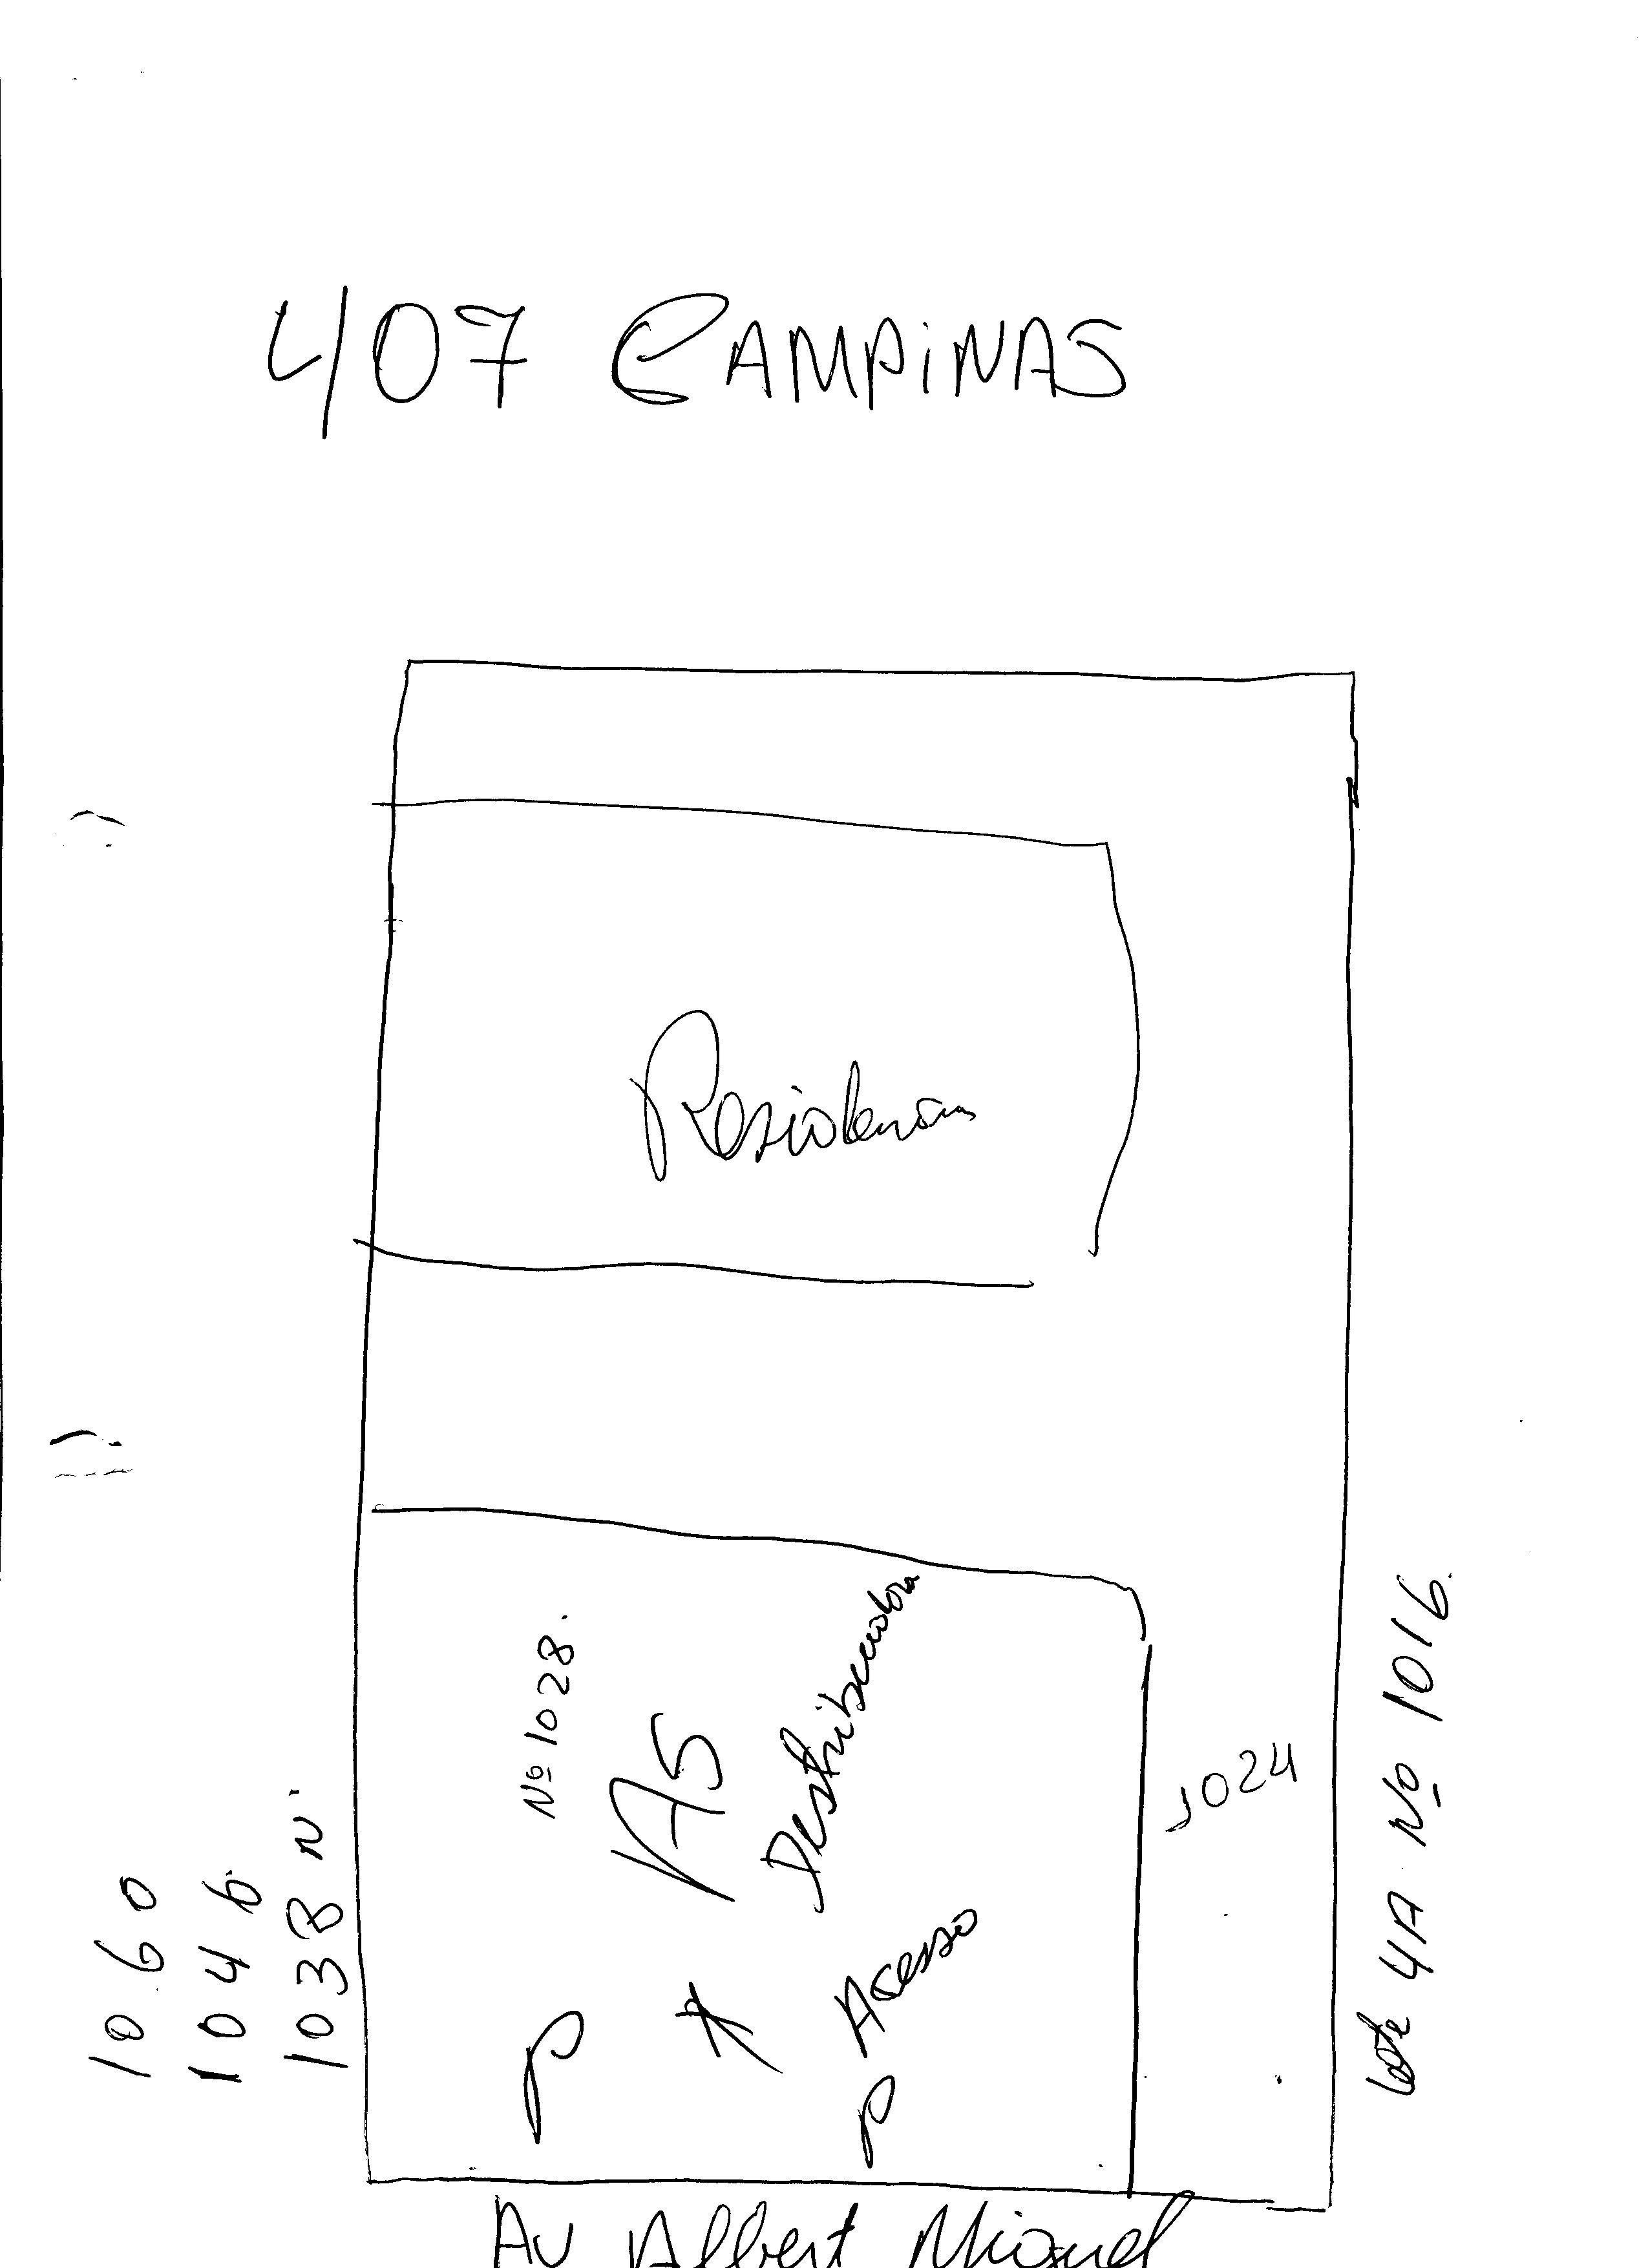 407 CAMPiNAS
Residencia
Nº 1028.
AS
Destribuidora
P
Acesso
P
1024
Lote 4A Nº 1016.
1060
1046
1038 N
Av Albert Miguel